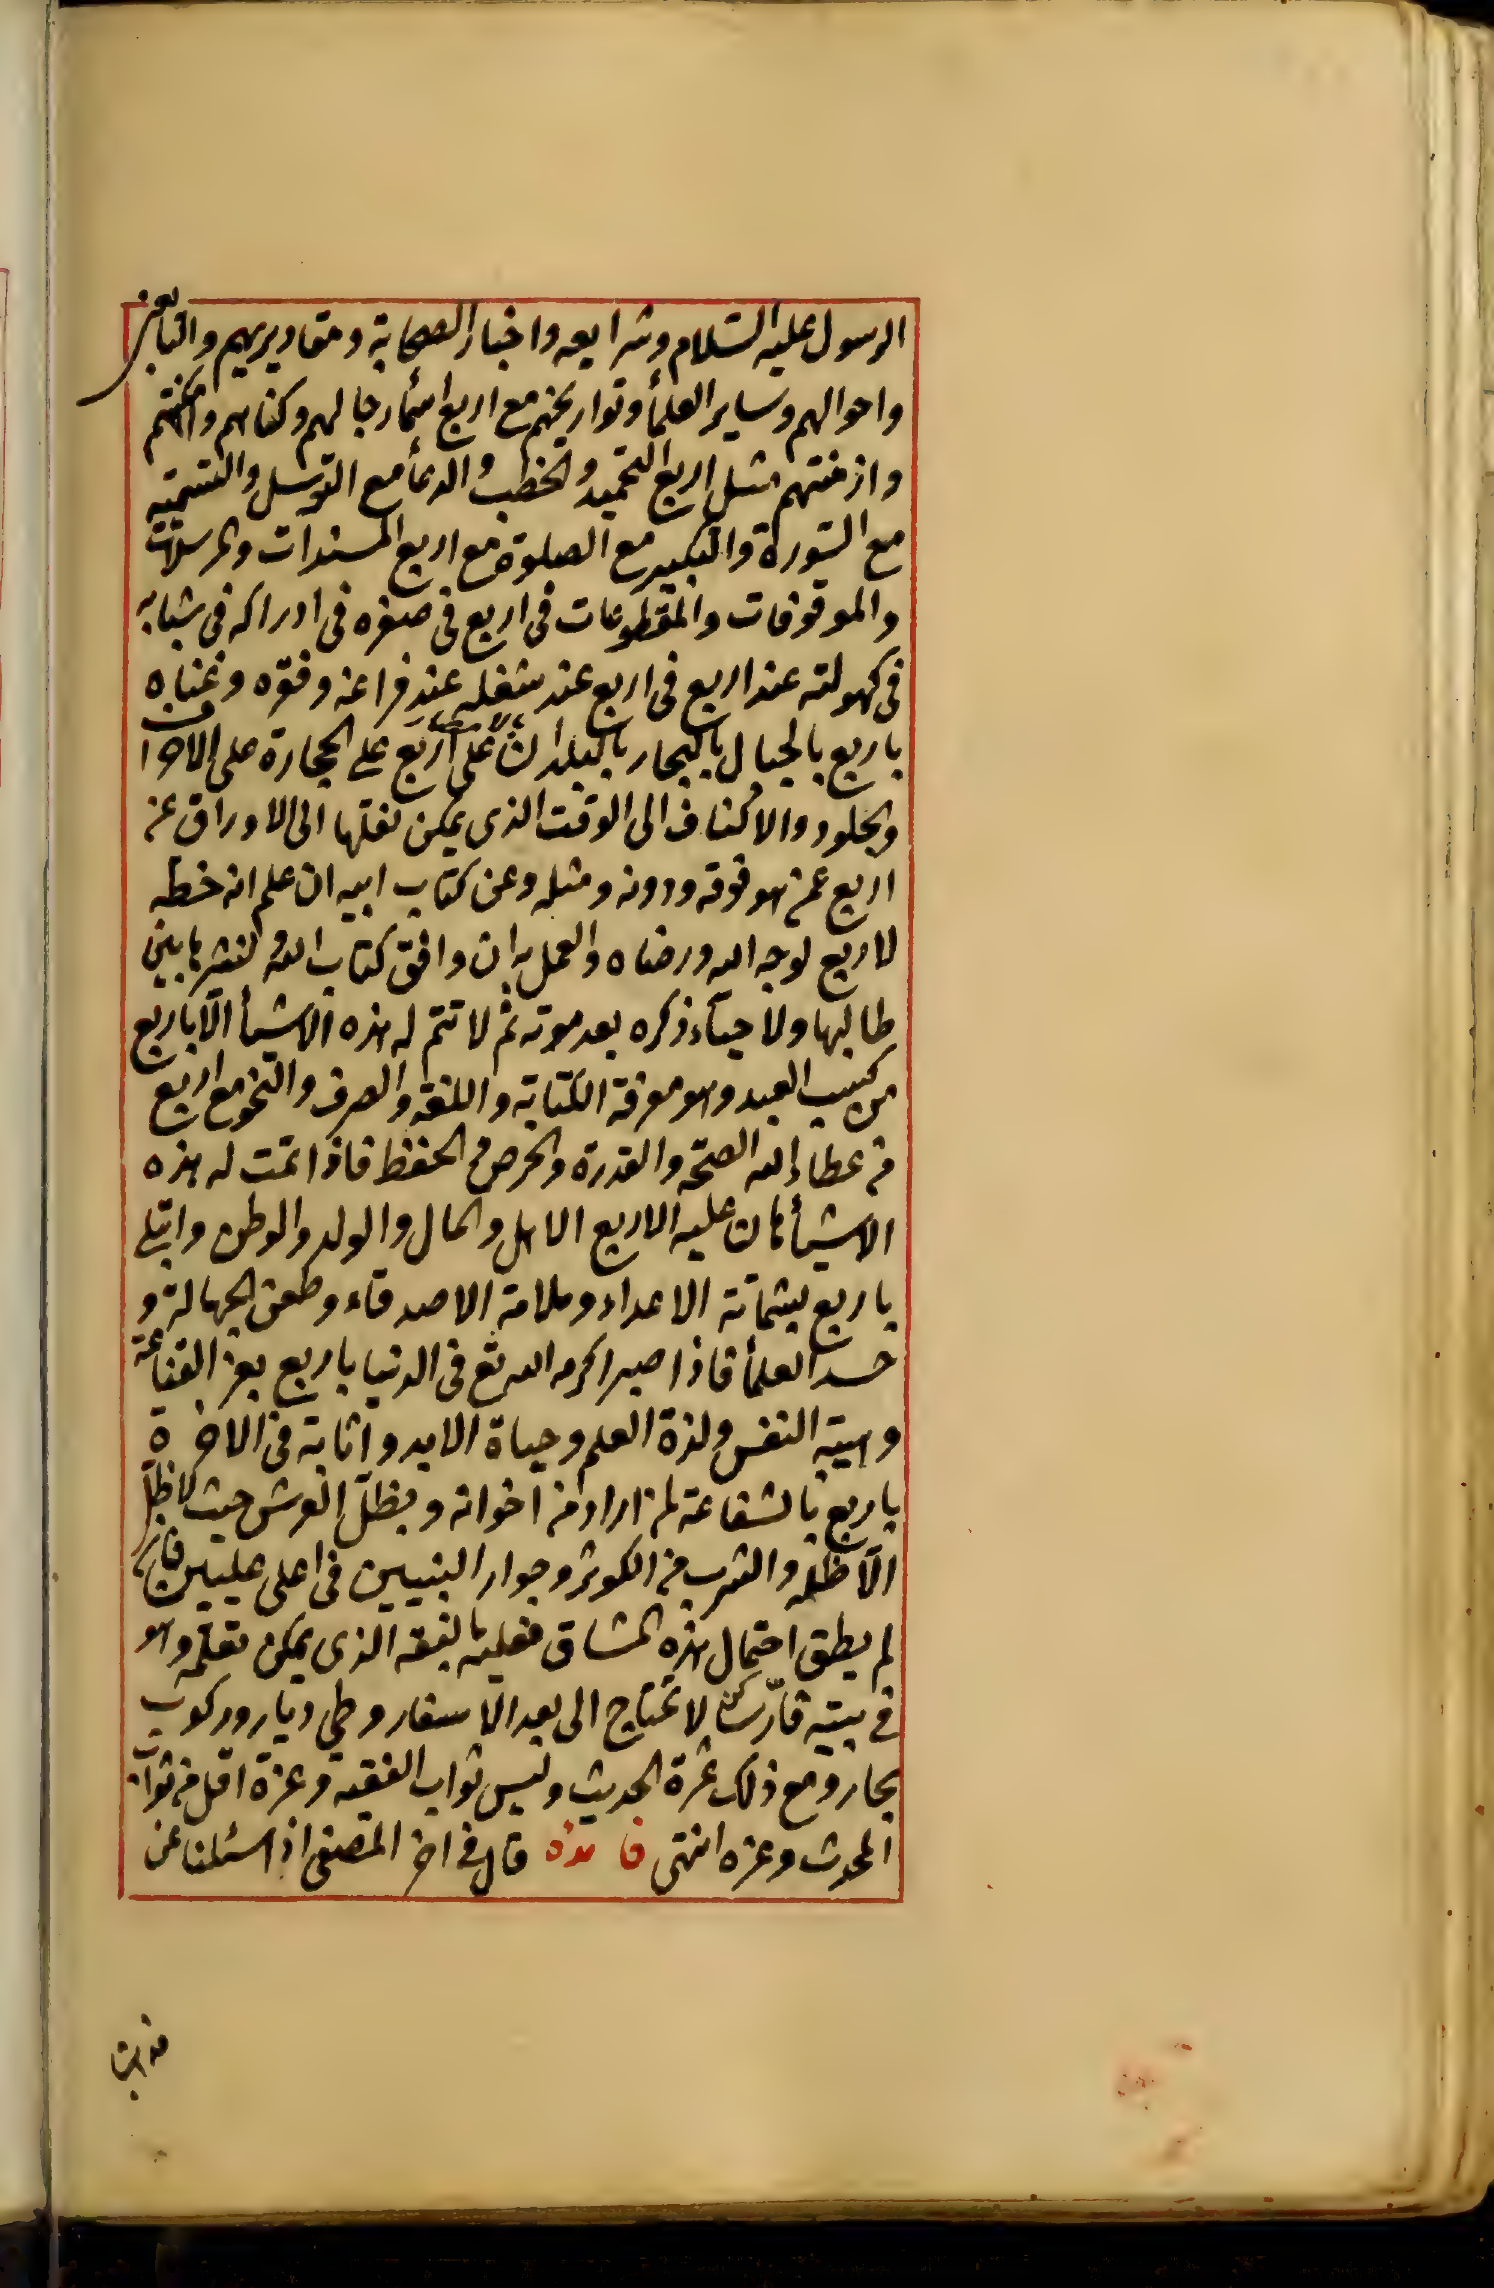 الرسول عليه السلام وشرايعه واخبار الصحابة ومقاديرهم والتابعين
واحوالهم وساير العلمأ وتواريخهم مع اربع اسمأ رجالهم وكناهم وامكنتهم
وازمنتهم مثل اربع التحميد والخطب والدعأ مع التوسل والتسمية
مع السورة والتكبير مع الصلوة مع اربع المسندات والمرسلات
والموقوفات والمقطوعات فى اربع فى صغره فى ادراكه فى شبابه
فى كهولته عند اربع فى اربع عند شغله عند فراغه وفقره وغناه
باربع بالجبال بالبحار بالبلدان على اربع على الحجارة على الاخزاف
والجلود والاكتاف الى الوقت الذى يمكن نقلها الى الاوراق عن
اربع عمن هو فوقه ودونه ومثله وعن كتاب ابيه ان علم انه خطه
لاربع لوجه الله ورضاه والعمل به ان وافق كتاب الله ولنشرها بين
طالبها ولاحيآء ذكره بعد موته ثم لا تتم له هذه الاشيأ الّا باربع
من كسب العبد وهو معرفة الكتابة واللغة والصرف والنحو مع اربع
من عطاء الله الصحّة والقدرة والحرص والحفظ فاذا تمت له هذه
الاشيأ هان عليه الاربع الاهل والمال والولد والوطن وابتلى
باربع بشماتة الاعداء وملامة الاصدقاء وطعن الجهالة و
حسد العلمأ فاذا صبر اكرمه الله تع فى الدنيا باربع بعز القناعة
وهيبة النفس ولذة العلم وحياة الابد واثابه فى الاخرة
باربع بالشفاعة لمن اراد من اخوانه وبظلّ العرش حيث لا ظلّ
الّا ظله والشرب من الكوثر وجوار النبيين فى اعلى عليين فان
لم يطق احتمال هذه المشاق فعليه بالفقه الذى يمكن تعلّمه وهو
فى بيته قارّ ساكن لا تحتاج الى بعد الاسفار وطى ديار وركوب
بحار ومع ذلك ثمرة الحديث وليس ثواب الفقيه وعزة اقل من ثواب
المحدث وعزه انتهى فائده قال فى اخر المصفى اذا سئلنا عن